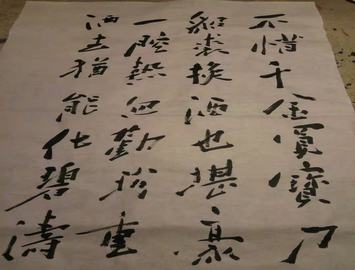 不惜千金買寶刀
貂裘換酒也堪豪
一腔熱血勤珍重
洒去猶能化碧濤